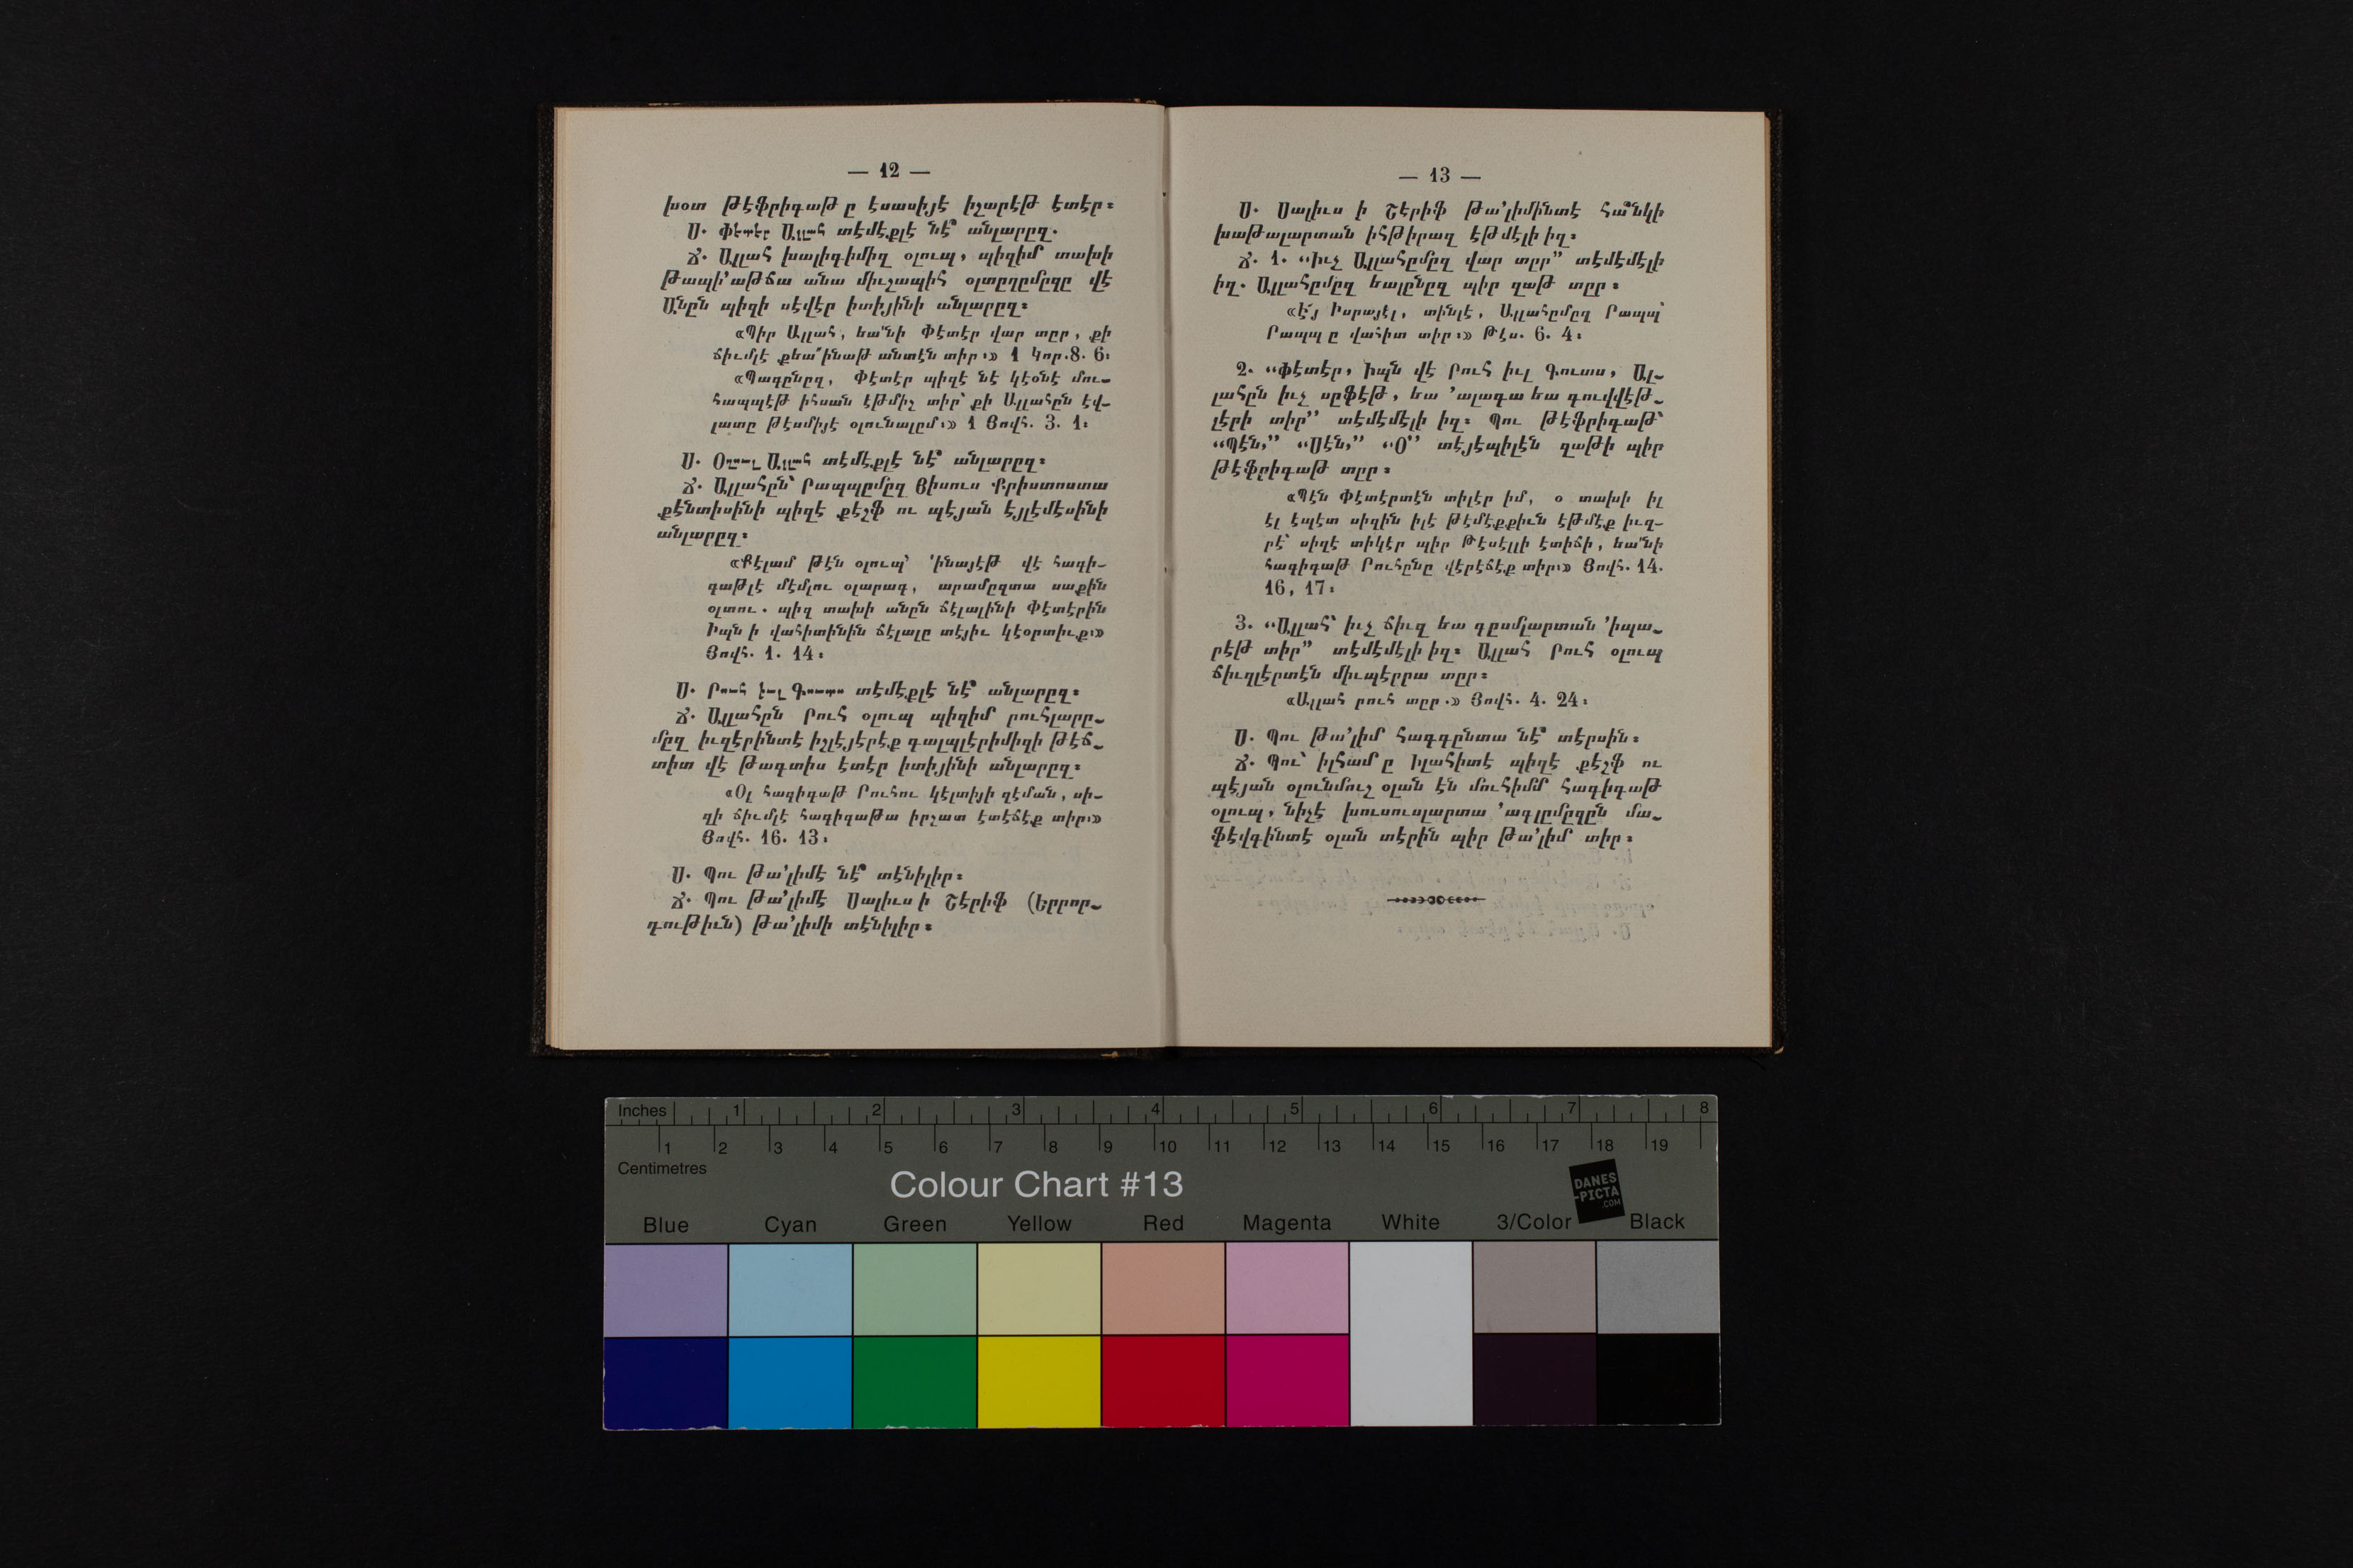 — 12 —
խօտ թէֆրիգաթ ը էսասիյէ իշարէթ էտէր։
Ս. Փէտէր Ալլահ տէմէքլէ նէ՞ անլարըզ.
Ճ. Ալլահ խալիգիմիզ օլուպ, պիզիմ տախի
թապի՚աթճա անա միւշապիհ օլտըղըմըզը վէ
Անըն պիզի սէվէր իտիյինի անլարըզ։
«Պիր Ալլահ, եա՛նի Փէտէր վար տըր, քի
ճիւմլէ քեա՛ինաթ անտէն տիր։» 1 Կոր.8. 6։
«Պագընըզ, Փէտէր պիզէ նէ կէօնէ մու-
հապպէթ իհսան էթմիշ տիր՝ քի Ալլահըն էվ-
լատը թէսմիյէ օլունալըմ։» 1 Յովհ. 3. 1։
Ս. Օղուլ Ալլահ տէմէքլէ նէ՞ անլարըզ։
Ճ. Ալլահըն՝ Րապպըմըզ Յիսուս Քրիստոստա
քէնտիսինի պիզէ քէշֆ ու պէյան էյլէմէսինի
անլարըզ։
«Քէլամ թէն օլուպ՝ ՚ինայէթ վէ հագի-
գաթլէ մէմլու օլարագ, արամըզտա սաքին
օլտու. պիզ տախի անըն ճէլալինի Փէտէրին
Իպն ի վահիտինին ճէլալը տէյիւ կէօրտիւք։»
Յովհ. 1. 14։
Ս. Րուհ իւլ Գուտս տէմէքլէ նէ՞ անլարըզ։
Ճ. Ալլահըն Րուհ օլուպ պիզիմ րուհլարը-
մըզ իւզէրինտէ իշլէյէրէք գալպլէրիմիզի թէճ-
տիտ վէ թագտիս էտէր իտիյինի անլարըզ։
«Օլ հագիգաթ Րուհու կէլտիյի զէման, սի-
զի ճիւմլէ հագիգաթա իրշատ էտէճէք տիր։»
Յովհ. 16. 13։
Ս. Պու թա՚լիմէ նէ՞ տէնիլիր։
Ճ. Պու թա՚լիմէ Սալիւս ի Շէրիֆ (Երրոր-
դութիւն) թա՚լիմի տէնիլիր։
— 13 —
Ս. Սալիւս ի Շէրիֆ թա՚լիմինտէ հա՞նկի
խաթալարտան իհթիրազ էթմէլի իզ։
Ճ. 1. “Իւչ Ալլահըմըզ վար տըր” տէմէմէլի
իզ. Ալլահըմըզ եալընըզ պիր զաթ տըր։
«Է՜յ Իսրայէլ, տինլէ, Ալլահըմըզ Րապպ՝
Րապպ ը վահիտ տիր։» Թէս. 6. 4։
2. “Փէտէր, Իպն վէ Րուհ իւլ Գուտս, Ալ-
լահըն իւչ սըֆէթ, եա ՚ալագա եա գուվվէթ-
լէրի տիր” տէմէմէլի իզ։ Պու թէֆրիգաթ՝
“Պէն,” “Սէն,” “Օ” տէյէպիլէն զաթի պիր
թէֆրիգաթ տըր։
«Պէն Փէտէրտէն տիլէր իմ, օ տախի իլ
էլ էպէտ սիզին իլէ թէմէքքիւն էթմէք իւզ-
րէ՝ սիզէ տիկէր պիր Թէսէլլի էտիճի, եա՛նի
հագիգաթ Րուհընը վէրէճէք տիր։» Յովհ. 14.
16, 17։
3. “Ալլահ՝ իւչ ճիւզ եա գըսմլարտան ՚իպա-
րէթ տիր” տէմէմէլի իզ։ Ալլահ Րուհ օլուպ
ճիւզլէրտէն միւպէրրա տըր։
«Ալլահ րուհ տըր.» Յովհ. 4. 24։
Ս. Պու թա՚լիմ հագգընտա նէ՞ տէրսին։
Ճ. Պու՝ իլհամ ը Իլահիտէ պիզէ քէշֆ ու
պէյան օլունմուշ օլան էն մուհիմմ հագիգաթ
օլուպ, նիչէ խուսուսլարտա ՚ագլըմըզըն մա-
ֆէվգինտէ օլան տէրին պիր թա՚լիմ տիր։
Inches 1 2 3 4 5 6 7 8
1 2 3 4 5 6 7 8 9 10 11 12 13 14 15 16 17 18 19
Centimetres
Colour Chart #13
DANES
-PICTA
.COM
Blue Cyan Green Yellow Red Magenta White 3/Color Black